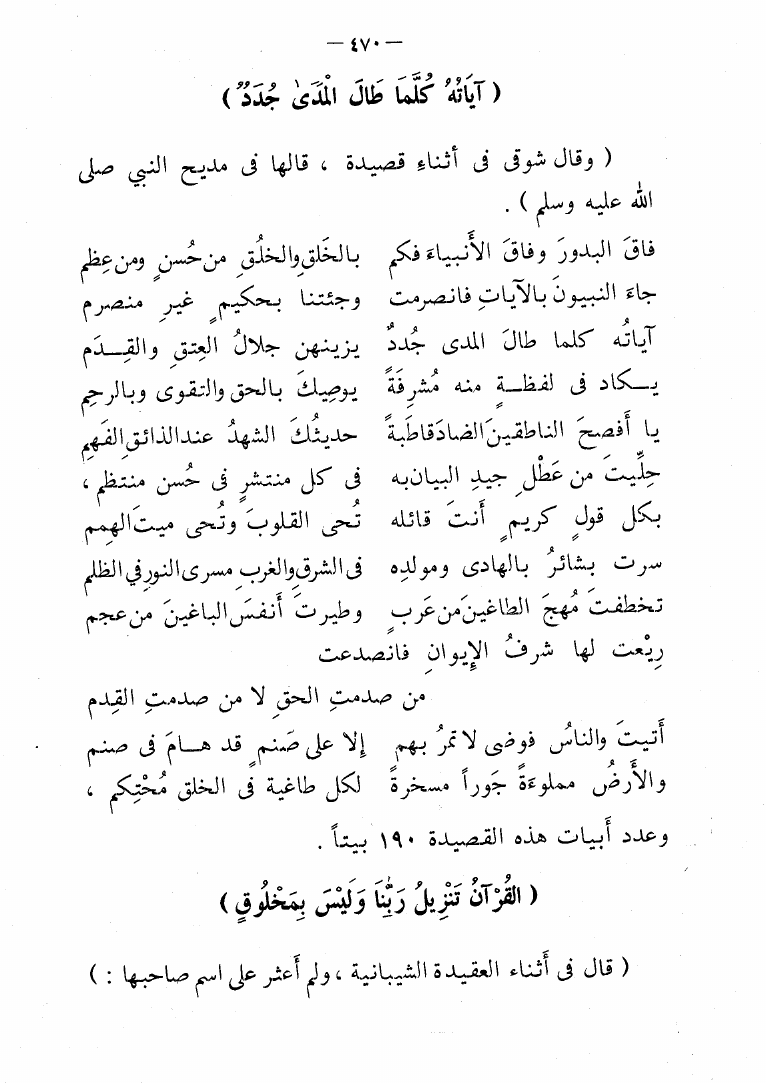 — ٤٧٠ —
( آيَاتُهُ كُلَّمَا طَالَ الْمَدَىٰ جُدَدٌ )
( وقال شوقى فى أثناءِ قصيدة ، قالها فى مديح النبي صلى
الله عليه وسلم ) .
فاقَ البدورَ وفاقَ الأَنبياءَ فكم بالخَلقِ والخلُقِ من حُسنٍ ومن عِظم
جاءَ النبيونَ بالآياتِ فانصرمت وجئتنا بحكيمٍ غيرِ منصرم
آياتُه كلما طالَ المدى جُددٌ يزينهن جلالُ العِتقِ والقِـدَم
يـكاد فى لفظـةٍ منه مُشرِفَةً يوصِيكَ بالحق والتقوى وبالرحِم
يا أَفصحَ الناطقينَ الضادَ قاطبةً حديثُكَ الشهدُ عند الذائقِ الفَهِم
حلِّيتَ من عَطْلٍ جيدِ البيان به فى كل منتشرٍ فى حُسن منتظم ،
بكل قولٍ كريمٍ أنتَ قائله تُحى القلوبَ وتُحى ميتَ الهمم
سرت بشائرُ بالهادى ومولدِه فى الشرقِ والغربِ مسرى النورِ في الظلم
تخطفتَ مُهجَ الطاغينَ من عَربٍ وطيرتَ أَنفسَ الباغينَ من عجم
رِيْعت لها شرفُ الإِيوانِ فانصدعت
من صدمتِ الحقِ لا من صدمتِ القِدم
أَتيتَ والناسُ فوضى لا تمرُ بهم إلا على صَنمٍ قد هـامَ فى صنم
والأَرضُ مملوءَةً جَوراً مسخرةً لكل طاغية فى الخلق مُحْتِكم ،
وعدد أَبيات هذه القصيدة ١٩٠ بيتاً .
( القُرْآنُ تَنْزِيلُ رَبِّنَا وَلَيْسَ بِمَخْلُوقٍ )
( قال فى أَثناء العقيدة الشيبانية ، ولم أعثر على اسم صاحبها : )